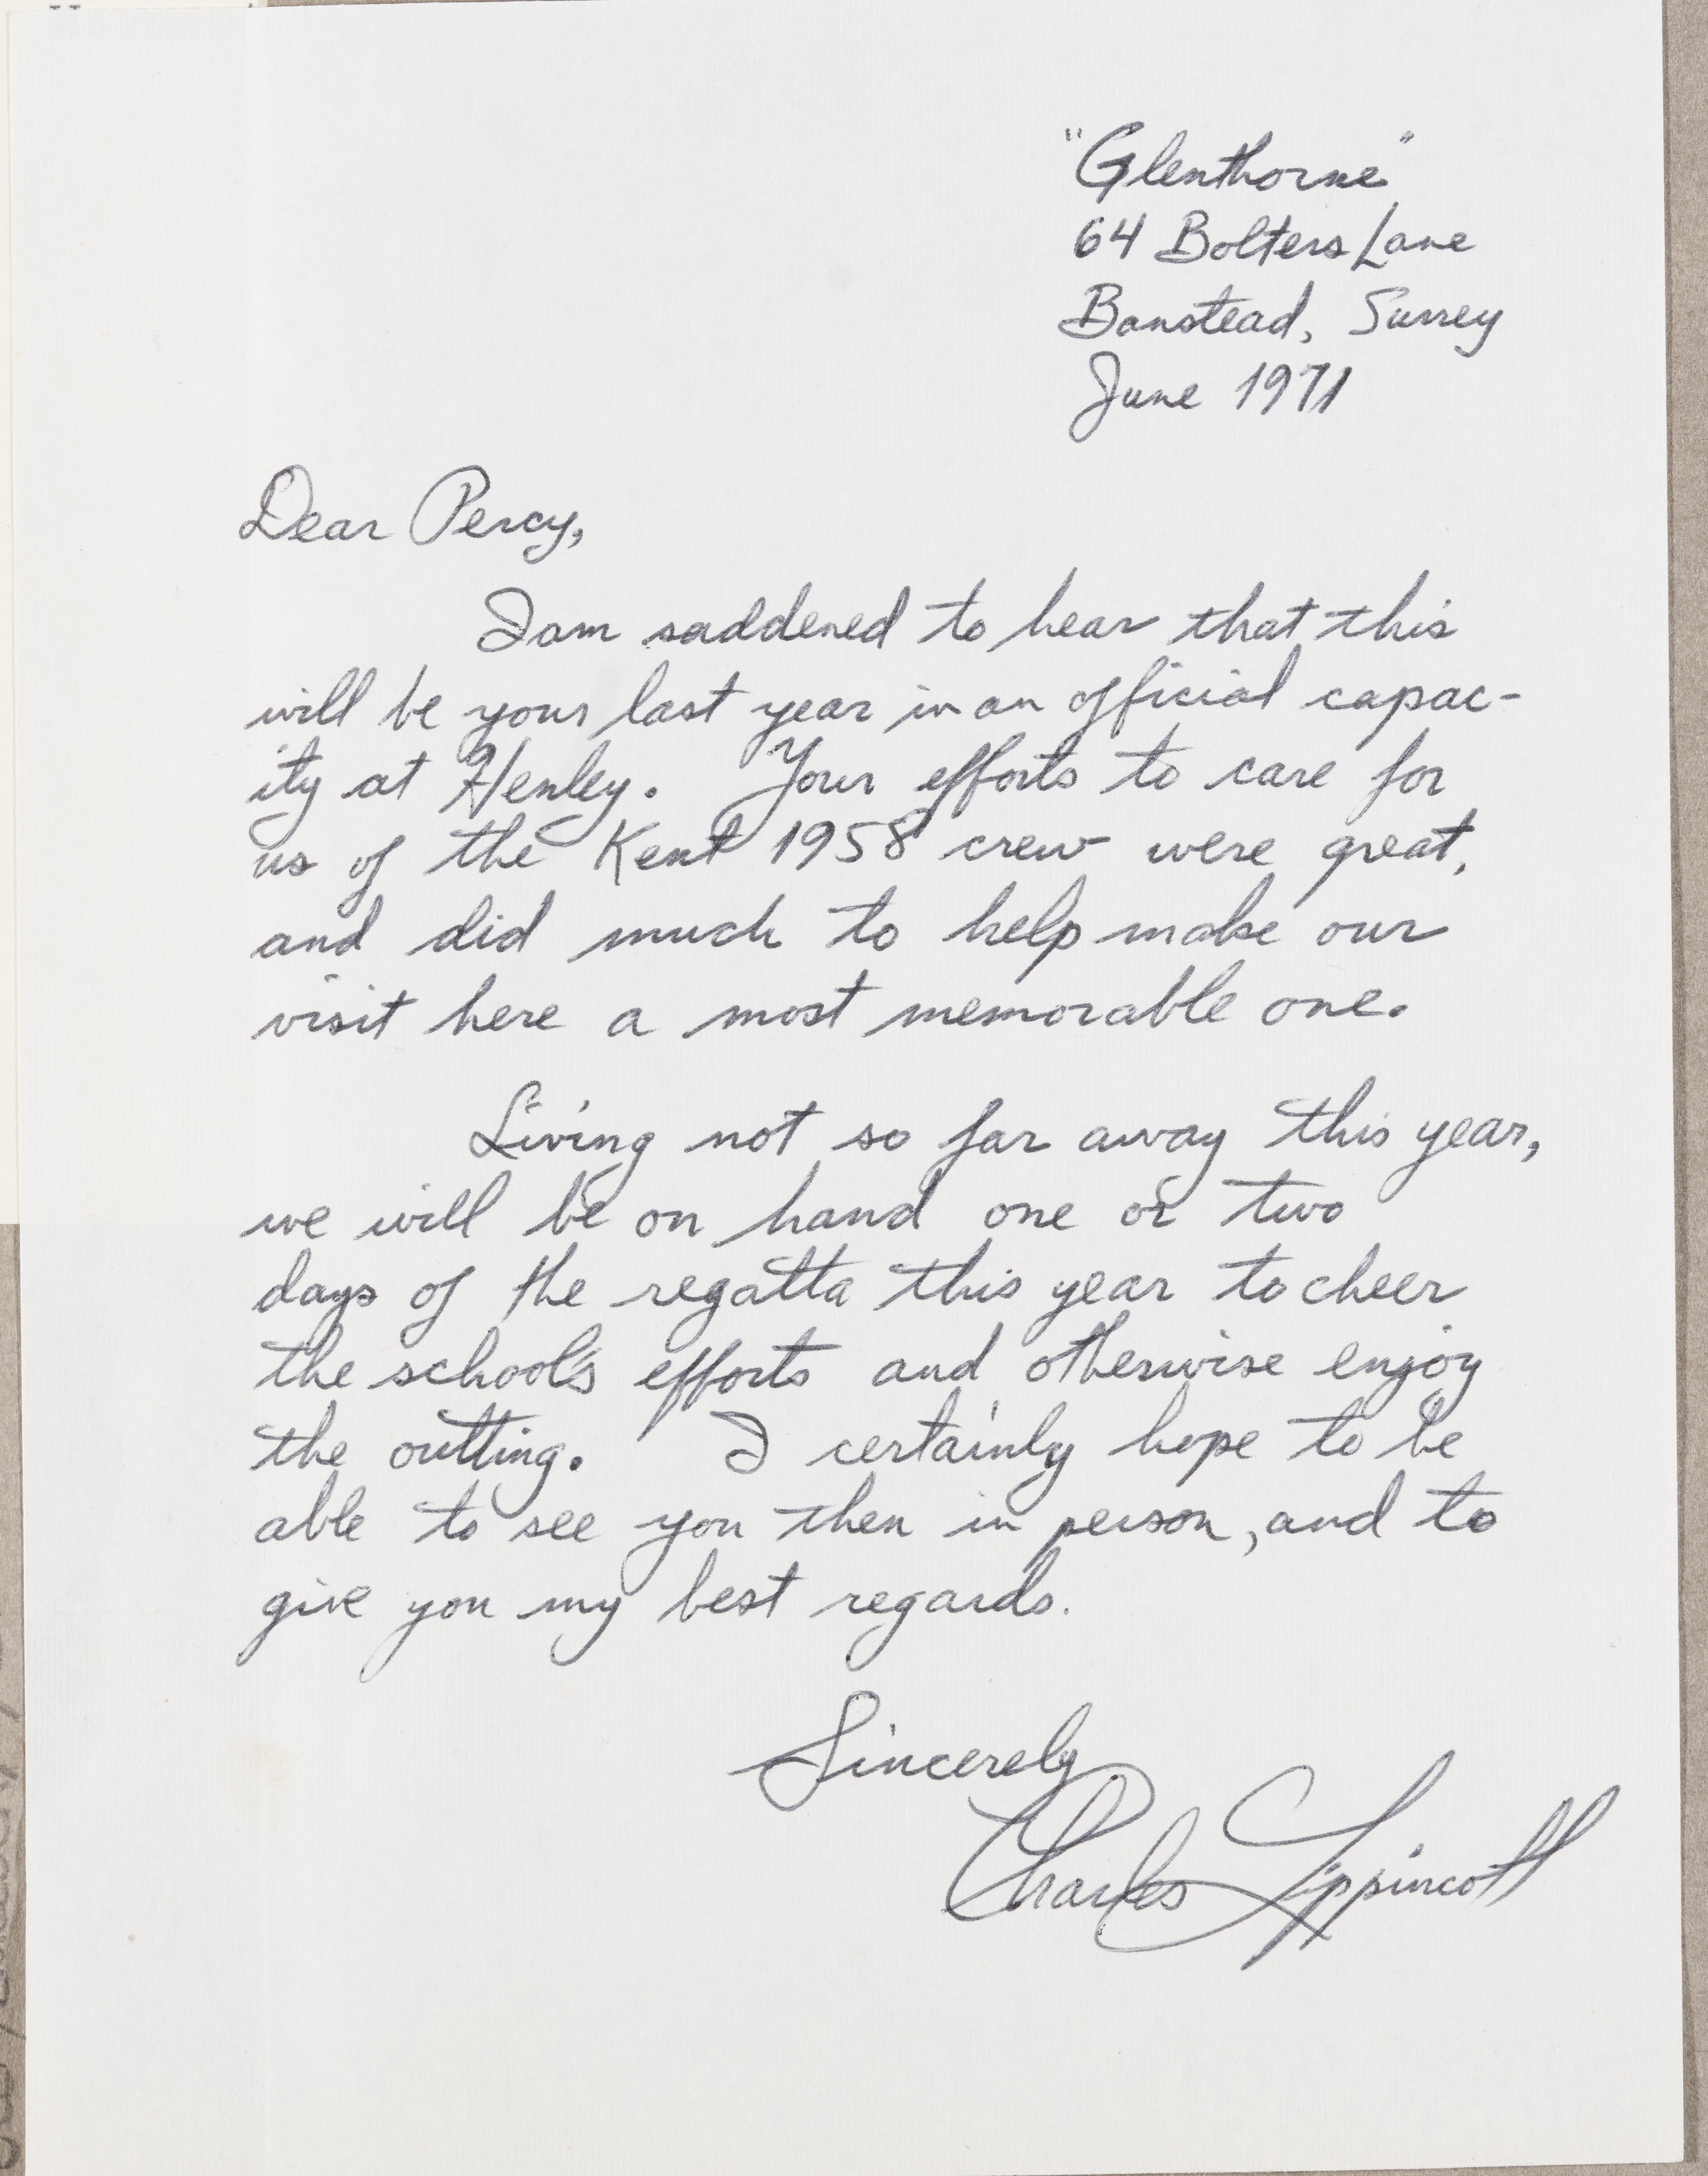 "Glenthorne"
64 Bolters Lane
Banstead, Surrey
June 1971
Dear Percy,
I am saddened to hear that this
will be your last year in an official capac-
ity at Henley. Your efforts to care for
us of the Kent 1958 crew were great,
and did much to help make our
visit here a most memorable one.
Living not so far away this year,
we will be on hand one or two
days of the regatta this year to cheer
the school's efforts and otherwise enjoy
the outting. I certainly hope to be
able to see you then in person, and to
give you my best regards.
Sincerely
Charles Lippincott